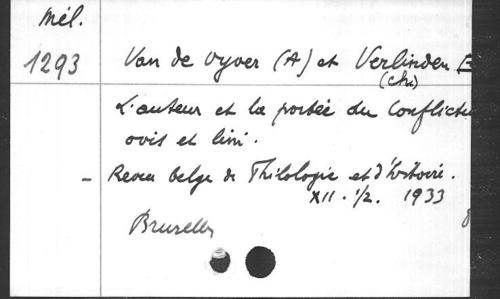 Mél.
1293
Van de Vyver (A) et Verlinden
(Ch)
L'auteur et la portée du Conflictu
ovis et lini.
- Revue belge de Philologie et d'histoire.
XII. 1/2. 1933
Bruxelles